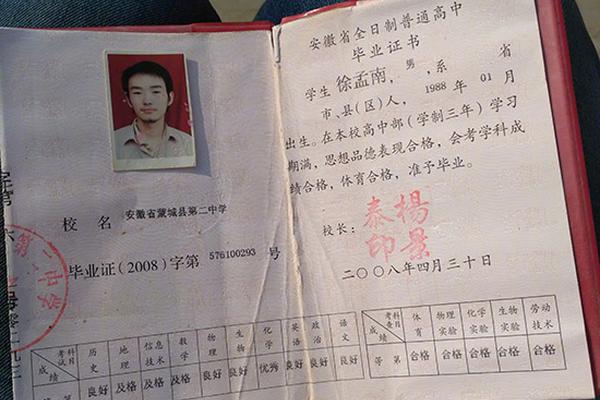 校 名 安徽省蒙城县第二中学
毕业证(2008)字第 576100293 号
第二中学
考试科目 历史 地理 信息技术 数学 物理 生物 化学 英语 政治 语文
成绩 良好 及格 及格 及格 良好 良好 优秀 良好 良好 良好
安徽省全日制普通高中
毕业证书
学生 徐孟南，男，系 省
市、县(区)人，1988 年 01 月
出生。在本校高中部(学制三年)学习
期满，思想品德表现合格，会考学科成
绩合格，体育合格，准予毕业。
校长：
楊景泰印
二〇〇八年四月三十日
考查科目 体育 物理实验 化学实验 生物实验 劳动技术
等第 合格 合格 合格 合格 合格